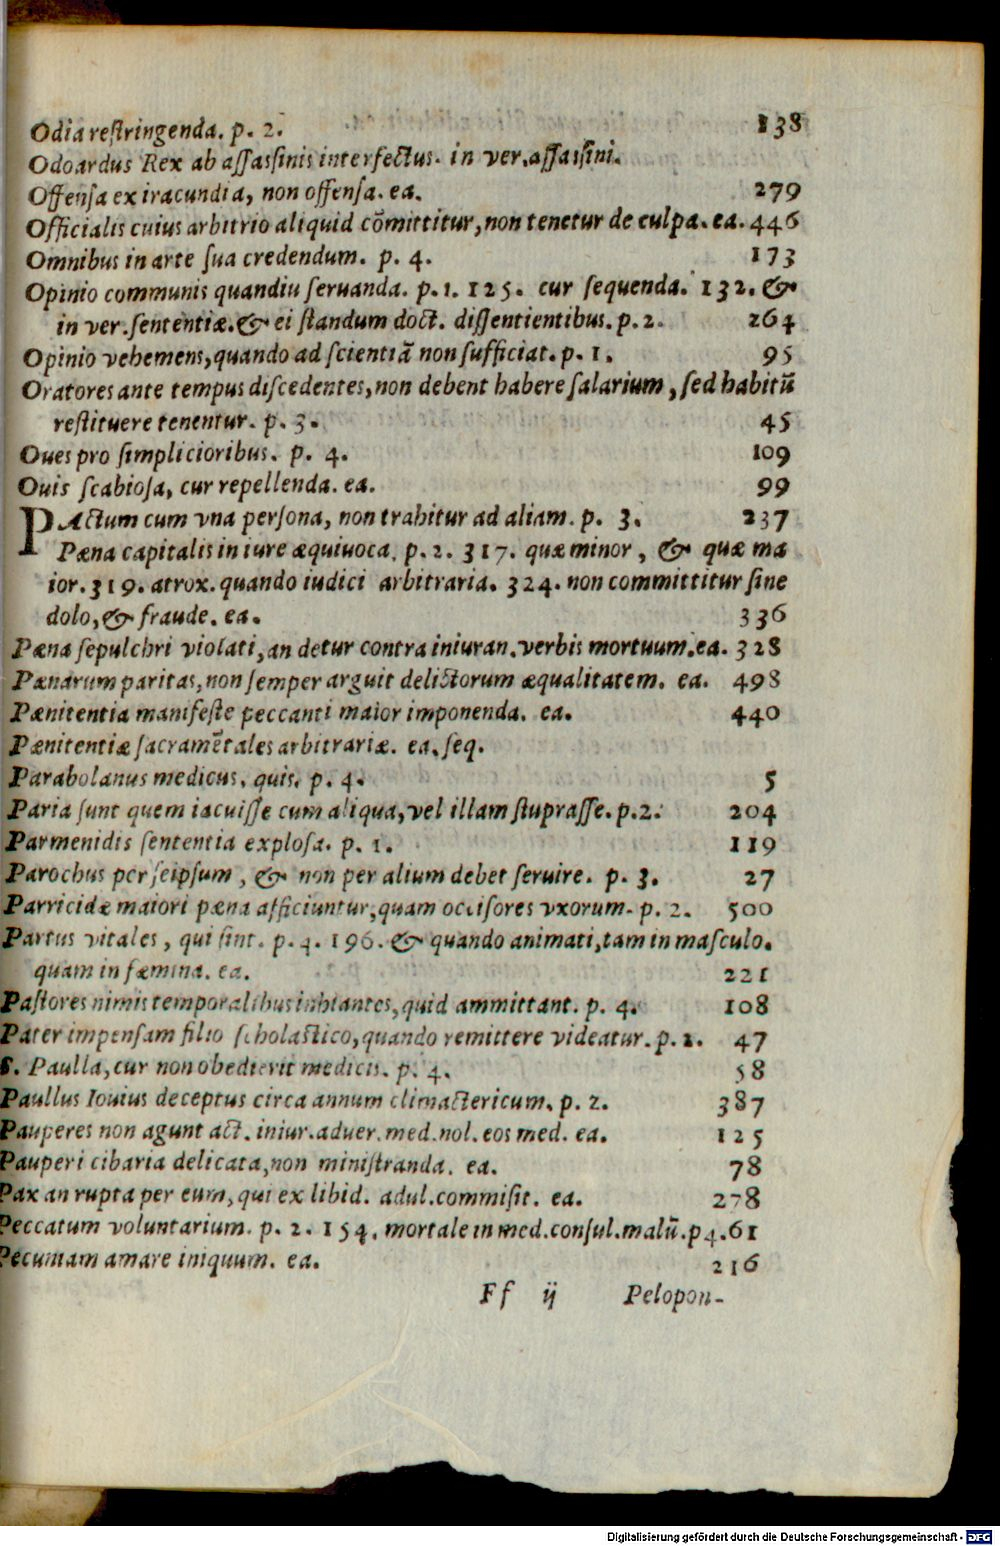 Odia reſtringenda. p. 2. 138
Odoardus Rex ab aſſaſsinis interfectus. in ver. aſſaſsini.
Offenſa ex iracundia, non offenſa. ea. 279
Officialis cuius arbitrio aliquid cōmittitur, non tenetur de culpa. ea. 446
Omnibus in arte ſua credendum. p. 4. 173
Opinio communis quandiu ſeruanda. p. 1. 125. cur ſequenda. 132. &
in ver. ſententiæ. & ei ſtandum doct. diſſentientibus. p. 2. 264
Opinio vehemens, quando ad ſcientiā non ſufficiat. p. 1. 95
Oratores ante tempus diſcedentes, non debent habere ſalarium, ſed habitū
reſtituere tenentur. p. 3. 45
Oues pro ſimplicioribus. p. 4. 109
Ouis ſcabioſa, cur repellenda. ea. 99
PActum cum vna perſona, non trahitur ad aliam. p. 3. 237
Pæna capitalis in iure æquiuoca. p. 2. 317. quæ minor, & quæ ma
ior. 319. atrox. quando iudici arbitraria. 324. non committitur ſine
dolo, & fraude. ea. 336
Pæna ſepulchri violati, an detur contra iniuran. verbis mortuum. ea. 328
Pænarum paritas, non ſemper arguit delictorum æqualitatem. ea. 498
Pænitentia manifeſte peccanti maior imponenda. ea. 440
Pænitentiæ ſacramētales arbitrariæ. ea. ſeq.
Parabolanus medicus, quis. p. 4. 5
Paria ſunt quem iacuiſſe cum aliqua, vel illam ſtupraſſe. p. 2. 204
Parmenidis ſententia exploſa. p. 1. 119
Parochus per ſeipſum, & non per alium debet ſeruire. p. 3. 27
Parricidæ maiori pæna afficiuntur, quam occiſores vxorum. p. 2. 500
Partus vitales, qui ſint. p. 4. 196. & quando animati, tam in maſculo.
quam in fæmina. ea. 221
Paſtores nimis temporalibus inhiantes, quid ammittant. p. 4. 108
Pater impenſam filio ſcholaſtico, quando remittere videatur. p. 2. 47
S. Paulla, cur non obedierit medicis. p. 4. 58
Paullus Iouius deceptus circa annum climactericum. p. 2. 387
Pauperes non agunt act. iniur. aduer. med. nol. eos med. ea. 125
Pauperi cibaria delicata, non miniſtranda. ea. 78
Pax an rupta per eum, qui ex libid. adul. commiſit. ea. 278
Peccatum voluntarium. p. 2. 154. mortale in med. conſul. malū. p 4. 61
Pecuniam amare iniquum. ea. 216
Ff ij Pelopon-
Digitalisierung gefördert durch die Deutsche Forschungsgemeinschaft - DFG